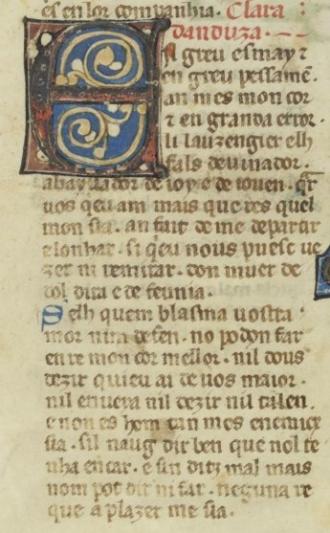 es en lor companhia. Clara
danduza.
En greu esmay ⁊
en greu pessamē.
an mes mon cor
⁊ en granda error.
li lauzengier elh
fals deuinador.
abayssador de ioy e de iouen. qr̄
uos qeu am mais que res quel
mon sia. an fait de me departir
e lonhar. si qeu nous puesc ue
zer ni remirar. don muer de
dol dira e de feunia.
Selh quem blasma uostra
mor nim defen. no podon far
en re mon cor mellor. nil dous
dezir quieu ai de uos maior.
nil enueia nil dezir nil talen.
e non es hom tan mes enemicx
sia. sil naug dir ben que nol te
nha en car. e sin ditz mal mais
nom pot dir ni far. neguna re
que a plazer me sia.